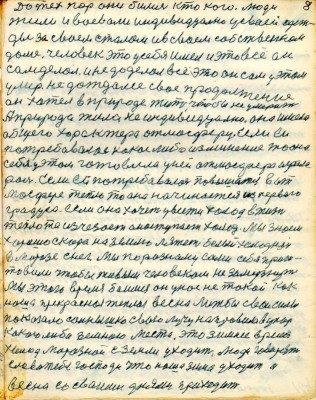 8
До тех пор они бились кто кого. люди
жили и воевали индивидуально у своей
за своим столом и в своем собственном
доме, человек это у себя имел и это все он
сам делал. и не доделал всё это он сам у этом
умер не дождался свое продолжение
он хотел в природе жить чтобы не умирать
А природа жила не индивидуально, она имела
общего характера атмосферу. Если ей
потребовалося какое либо изменение то она
себя у этом готовила у ней атмосфера
Если ей потребовалося повышать в ат
мосфере тепло то она начинается из первого
градуса. Если она хочет ввести холод в жизнь
тепло то исчезает а наступает холод. Мы знаем
хорошо когда на землю ляжет белый холодный
в морозе снег. Мы по разному сами себя приго
товили чтобы живым человекам не замерзнуть
Мы этого время боимся он у нас не такой как
наша прекрасная теплая весна лишь бы свои силы
показало солнышко своего лучу направило в упор
какого либо земного места, это зимнее время
холод морозной с земли уходит, люди говорят
слава тебе господи это наша зима уходит а
весна со своими днями приходит